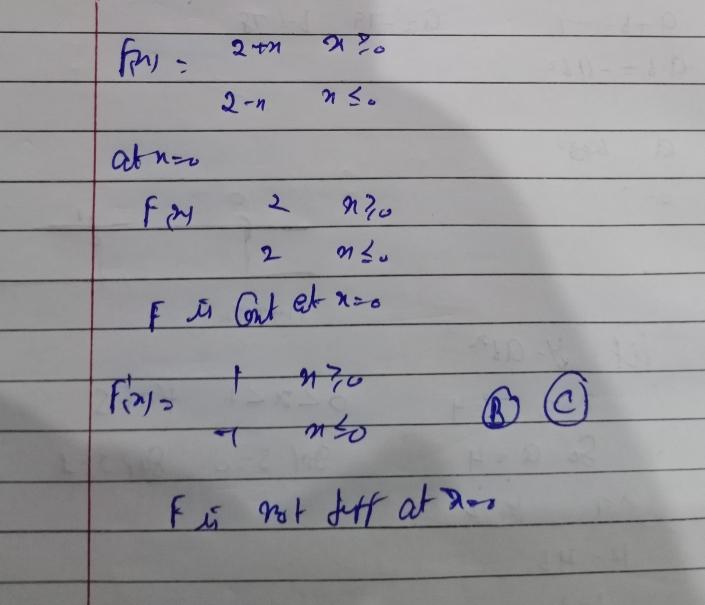 F(x) = 2+x x≥0
2-x x≤0
at x=0
F(x) 2 x≥0
2 x≤0
F is Cont at x=0
F'(x)= 1 x≥0
-1 x≤0
B C
F is not diff at x=0